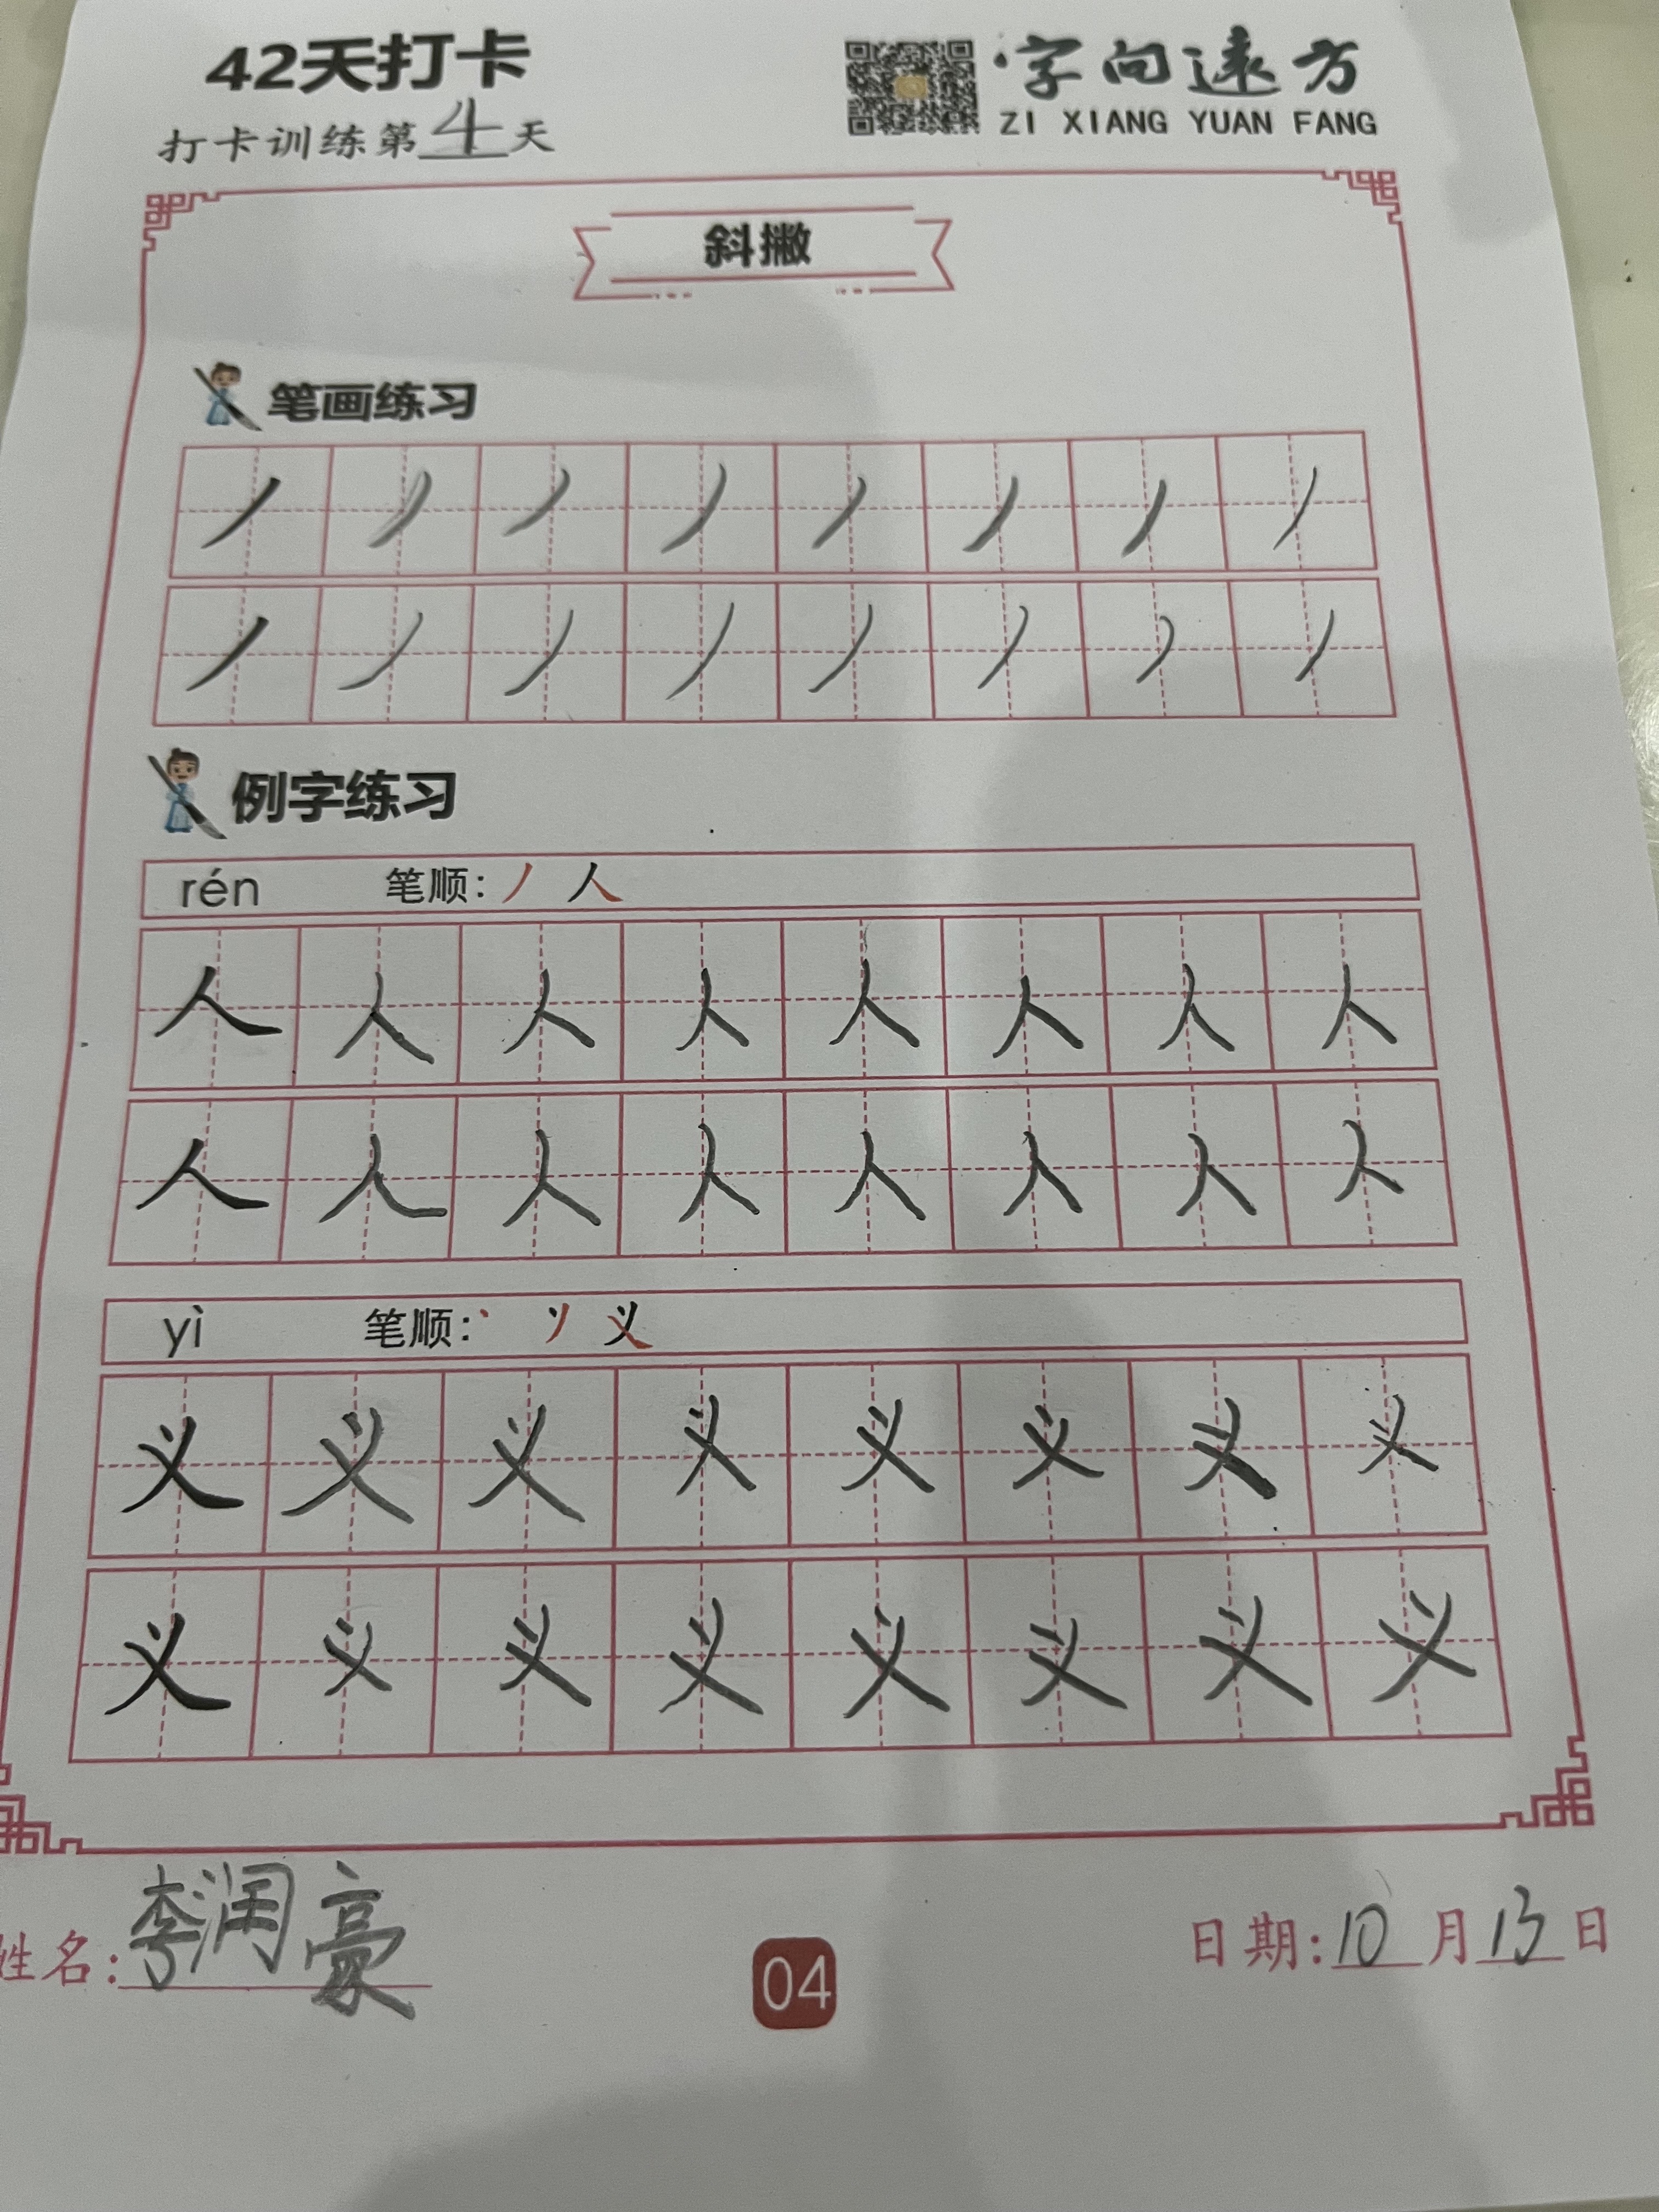 42天打卡
字向远方
打卡训练第4天
ZI XIANG YUAN FANG
斜撇
笔画练习
丿 丿 丿 丿 丿 丿 丿 丿
丿 丿 丿 丿 丿 丿 丿 丿
例字练习
rén 笔顺: 丿 人
人 人 人 人 人 人 人 人
人 人 人 人 人 人 人 人
yì 笔顺: 丶 丷 义
义 义 义 义 义 义 义 义
义 义 义 义 义 义 义 义
姓名: 李润豪
04
日期: 10月13日